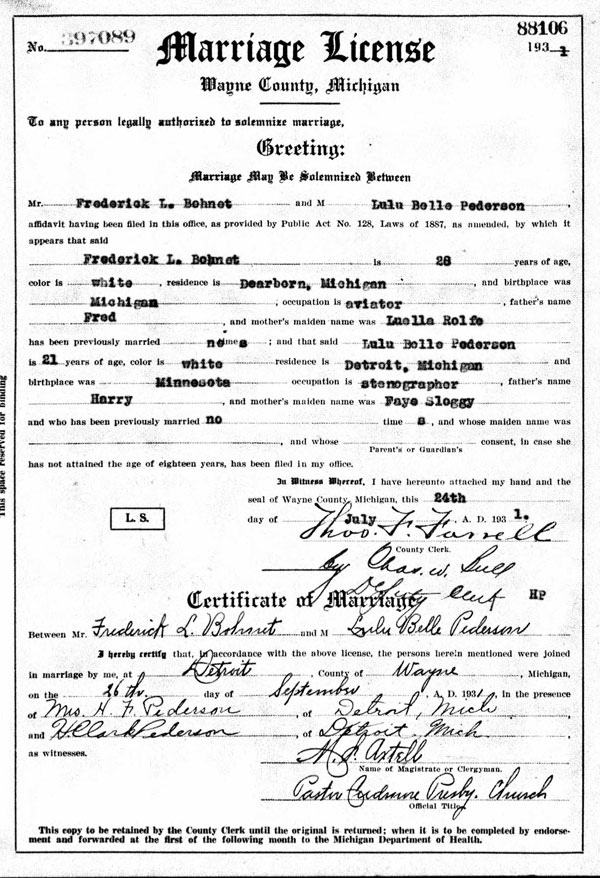 No. 397089
88106
Marriage License
193 1
Wayne County, Michigan
To any person legally authorized to solemnize marriage,
Greeting:
Marriage May Be Solemnized Between
Mr. Frederick L. Bohnet and M Lulu Belle Pederson,
affidavit having been filed in this office, as provided by Public Act No. 128, Laws of 1887, as amended, by which it
appears that said
Frederick L. Bohnet is 28 years of age,
color is white, residence is Dearborn, Michigan, and birthplace was
Michigan, occupation is aviator, father's name
Fred, and mother's maiden name was Luella Rolfe
has been previously married no times; and that said Lulu Belle Pederson
is 21 years of age, color is white residence is Detroit, Michigan and
birthplace was Minnesota occupation is stenographer, father's name
Harry, and mother's maiden name was Faye Sloggy
and who has been previously married no time s, and whose maiden name was
, and whose consent, in case she
Parent's or Guardian's
has not attained the age of eighteen years, has been filed in my office.
In Witness Whereof, I have hereunto attached my hand and the
seal of Wayne County, Michigan, this 24th
L. S.
day of July, A. D. 193 1.
Thos. F. Farrell
County Clerk.
by Chas. W.
Deputy Clerk HP
Certificate of Marriage
Between Mr. Frederick L. Bohnet and M Lulu Belle Pederson
I hereby certify that, in accordance with the above license, the persons herein mentioned were joined
in marriage by me, at Detroit, County of Wayne, Michigan,
on the 26th. day of September, A. D. 1931 in the presence
of Mrs. H. F. Pederson, of Detroit, Mich,
and H Clark Pederson, of Detroit, Mich,
as witnesses.
Name of Magistrate or Clergyman.
Pastor Presby. Church
Official Title.
This copy to be retained by the County Clerk until the original is returned; when it is to be completed by endorse-
ment and forwarded at the first of the following month to the Michigan Department of Health.
This space reserved for binding